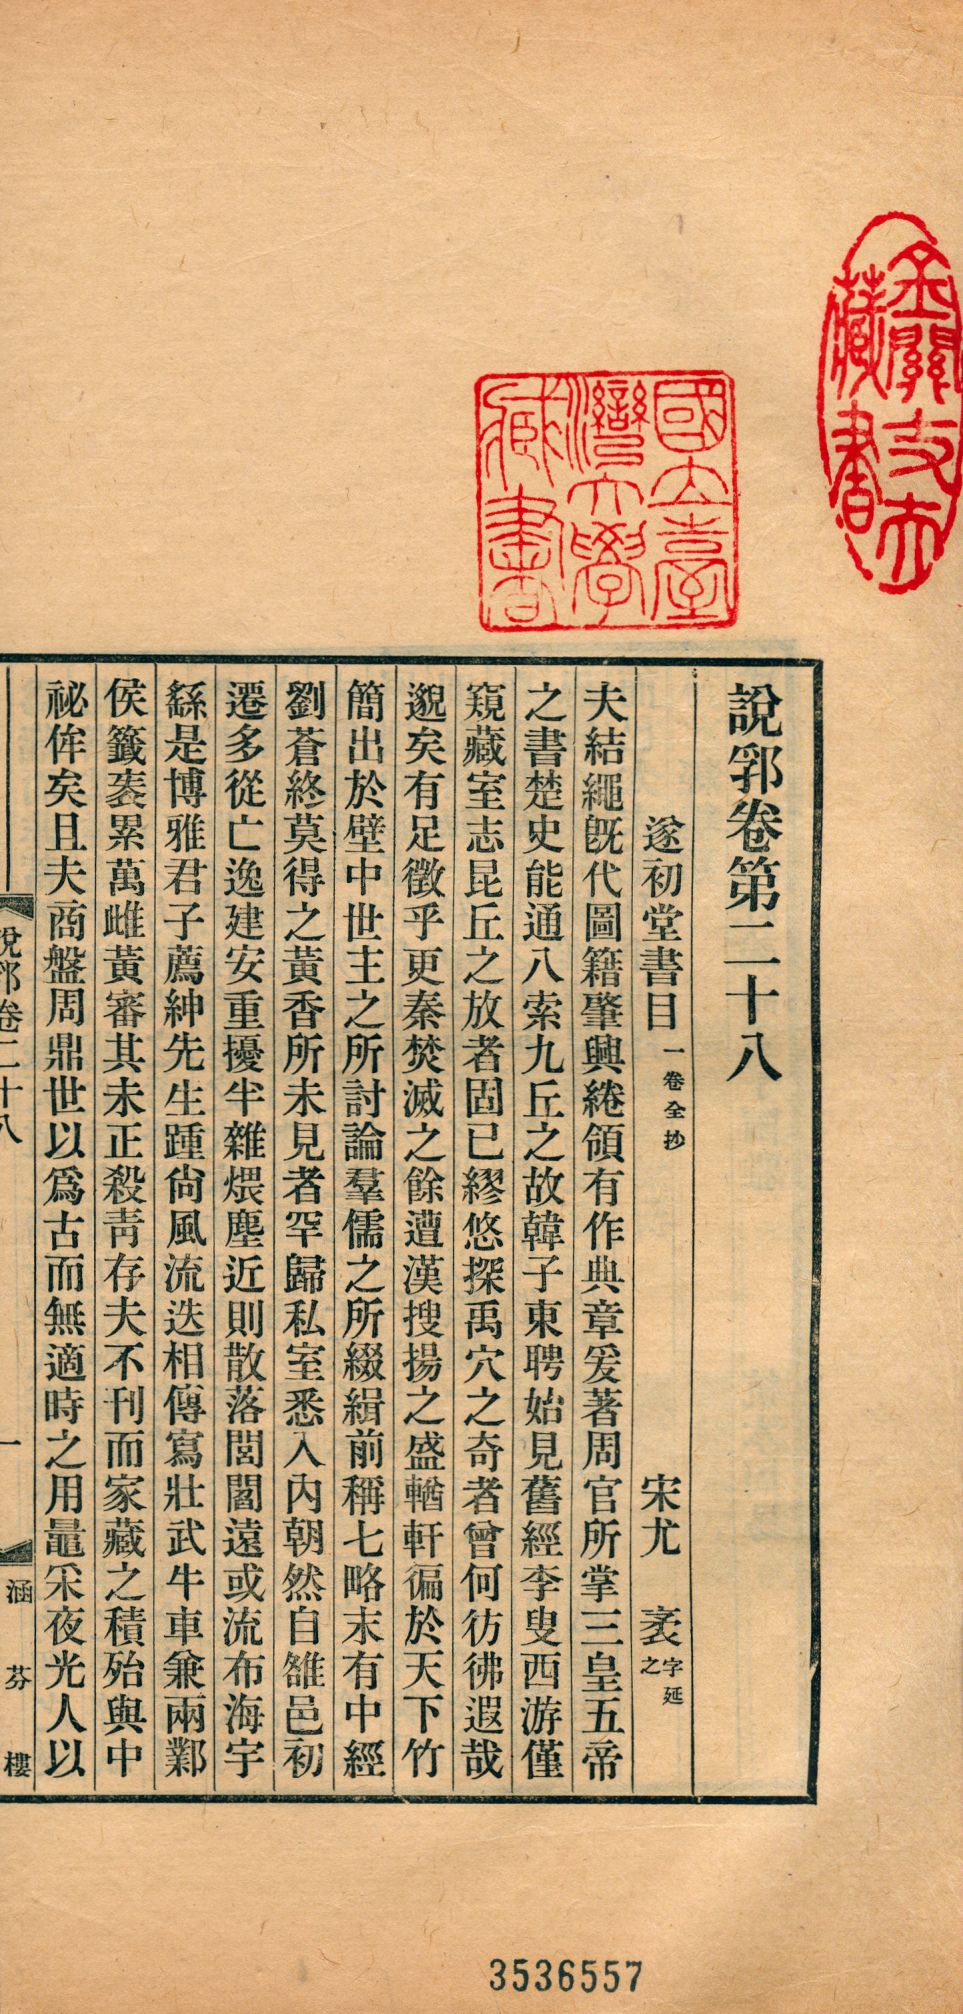 說郛卷第二十八
遂初堂書目 一卷全抄 宋尤袤 字延之
夫結繩旣代圖籍肇興綣領有作典章爰著周官所掌三皇五帝
之書楚史能通八索九丘之故韓子東聘始見舊經李叟西游僅
窺藏室志昆丘之放者固已繆悠探禹穴之奇者曾何彷彿遐哉
邈矣有足徵乎更秦焚滅之餘遭漢搜揚之盛輶軒徧於天下竹
簡出於壁中世主之所討論羣儒之所綴緝前稱七略末有中經
劉蒼終莫得之黃香所未見者罕歸私室悉入內朝然自雒邑初
遷多從亡逸建安重擾半雜煨塵近則散落閭閻遠或流布海宇
繇是博雅君子薦紳先生踵尙風流迭相傳寫壯武牛車兼兩鄴
侯籤袠累萬雌黃審其未正殺靑存夫不刊而家藏之積殆與中
祕侔矣且夫商盤周鼎世以爲古而無適時之用鼂采夜光人以
說郛卷二十八
一
涵芬樓
國立臺灣大學藏書
藏書
3536557